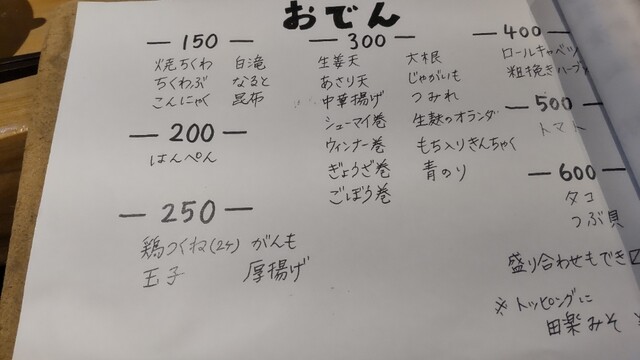 おでん
— 150 —
焼ちくわ 白滝
ちくわぶ なると
こんにゃく 昆布
— 200 —
はんぺん
— 250 —
鶏つくね(2ケ) がんも
玉子 厚揚げ
— 300 —
生姜天 大根
あさり天 じゃがいも
中華揚げ つみれ
シューマイ巻 生麩のオランダ
ウィンナー巻 もち入りきんちゃく
ぎょうざ巻 青のり
ごぼう巻
— 400 —
ロールキャベツ
粗挽きハーブ
— 500 —
トマト
— 600 —
タコ
つぶ貝
盛り合わせもでき
※トッピングに
田楽みそ